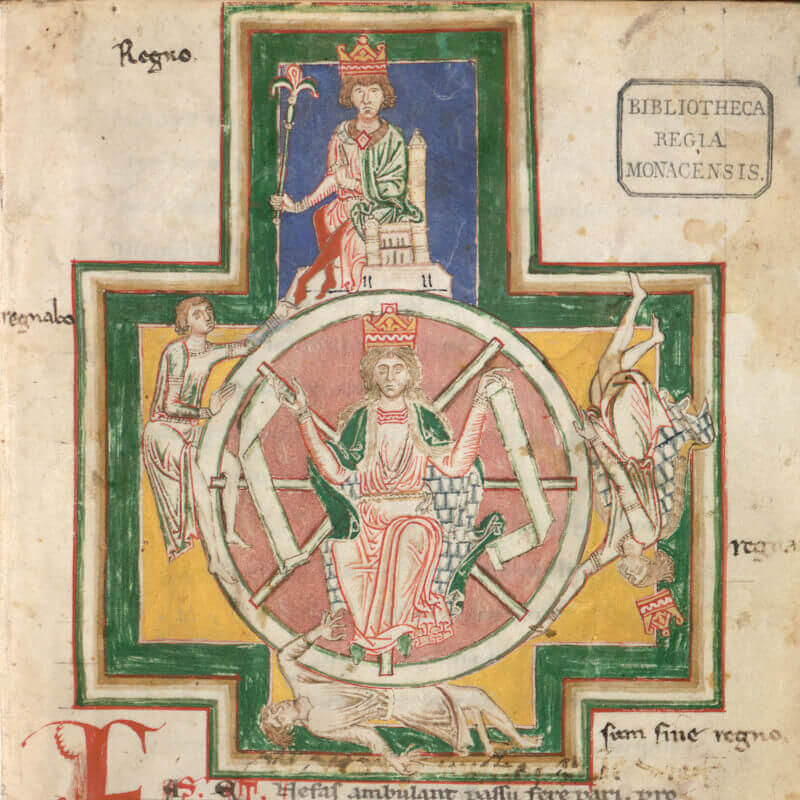 Regno.
BIBLIOTHECA
REGIA
MONACENSIS.
regnabo
sum sine regno.
AS. ET. Nefas ambulant passu fere pari. pro